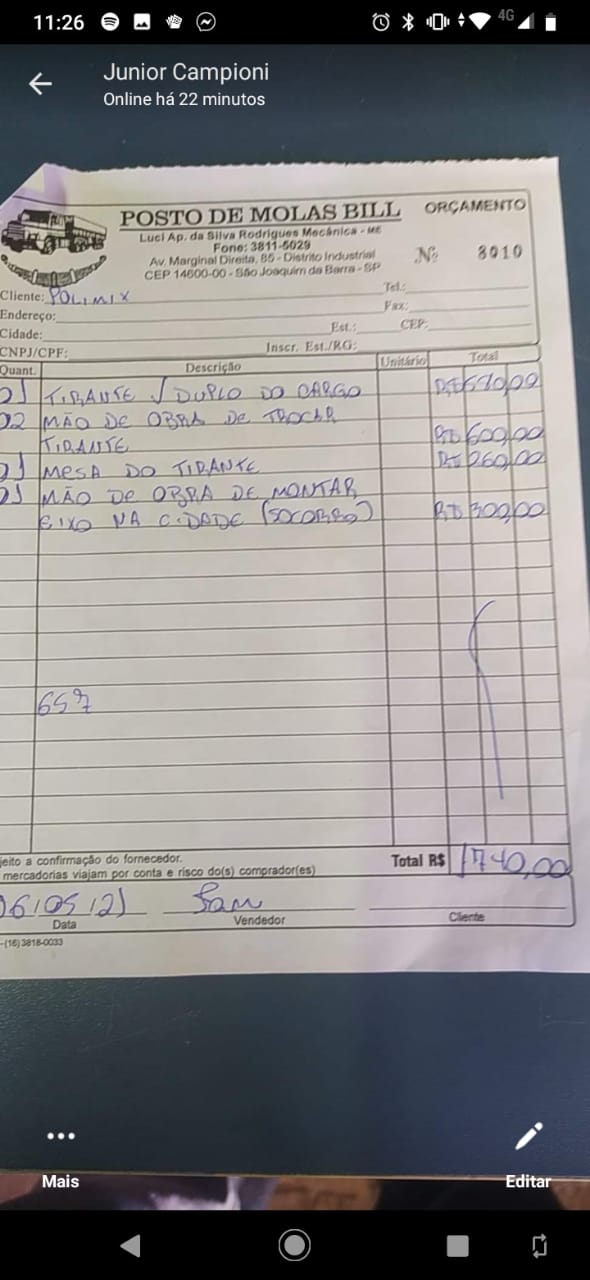 11:26
4G
Junior Campioni
Online há 22 minutos
POSTO DE MOLAS BILL
ORÇAMENTO
Luci Ap. da Silva Rodrigues Mecânica - ME
Fone: 3811-5029
Av. Marginal Direita, 85 - Distrito Industrial
CEP 14600-00 - São Joaquim da Barra - SP
Nº 3010
Cliente: POLIMIX
Tel.:
Endereço:
Fax:
Cidade:
Est.:
CEP:
CNPJ/CPF:
Inscr. Est./RG:
Quant. Descrição Unitário Total
01 TIRANTE / DUPLO DO CARGO R$ 580,00
02 MÃO DE OBRA DE TROCAR
TIRANTE R$ 600,00
01 MESA DO TIRANTE R$ 260,00
01 MÃO DE OBRA DE MONTAR
EIXO NA CIDADE (SOCORRO) R$ 300,00
657
jeito a confirmação do fornecedor.
mercadorias viajam por conta e risco do(s) comprador(es)
Total R$ 1740,00
06/05/21
Data
Vendedor
Cliente
-(16) 3818-0033
Mais
Editar